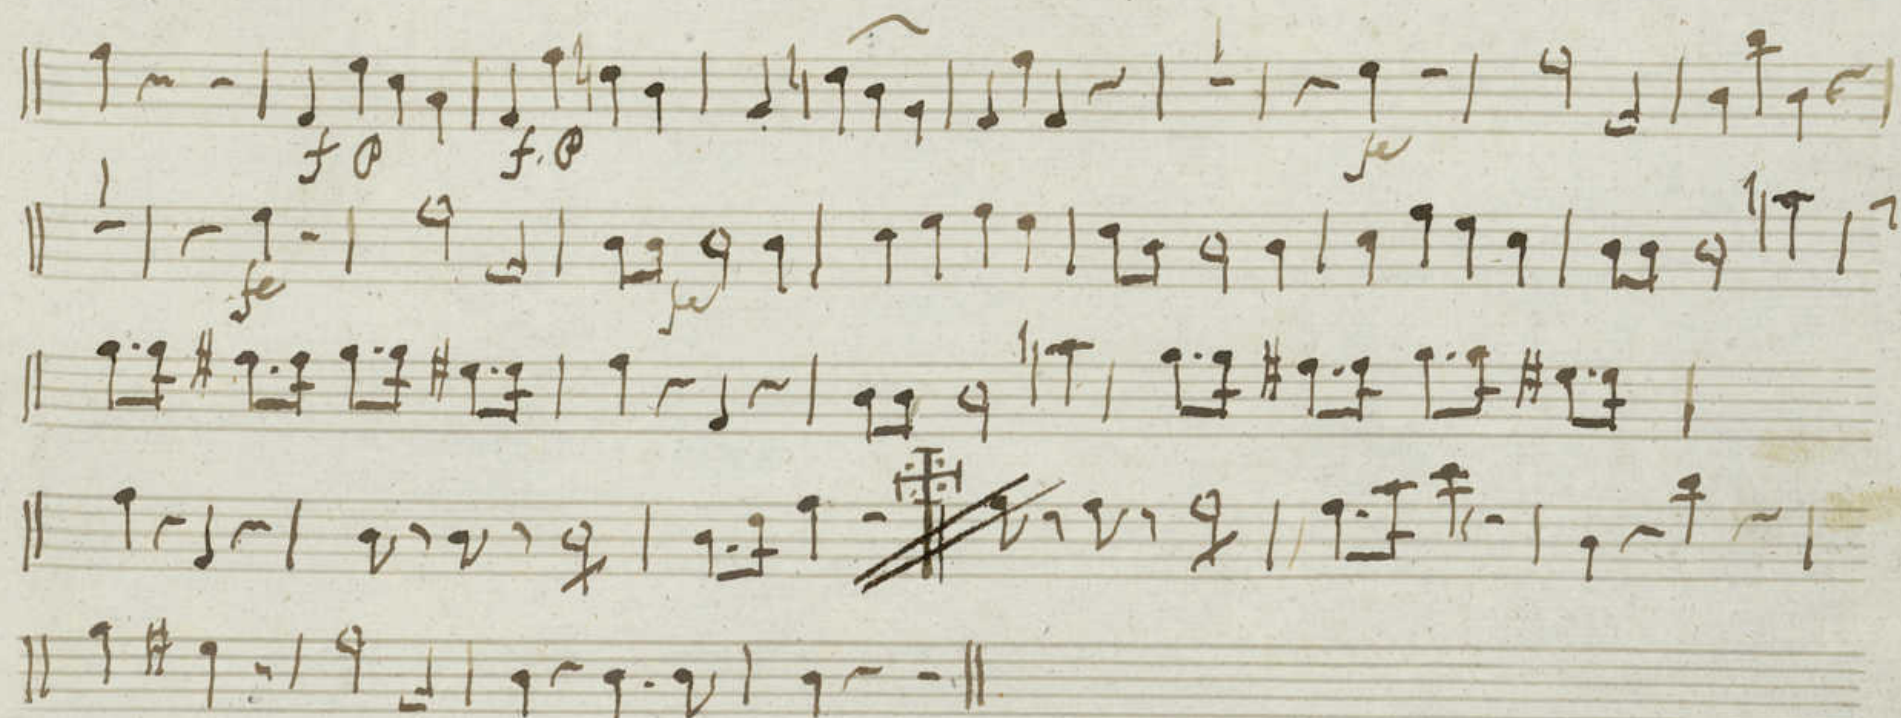 1
f p f. p fe
1
fe fe